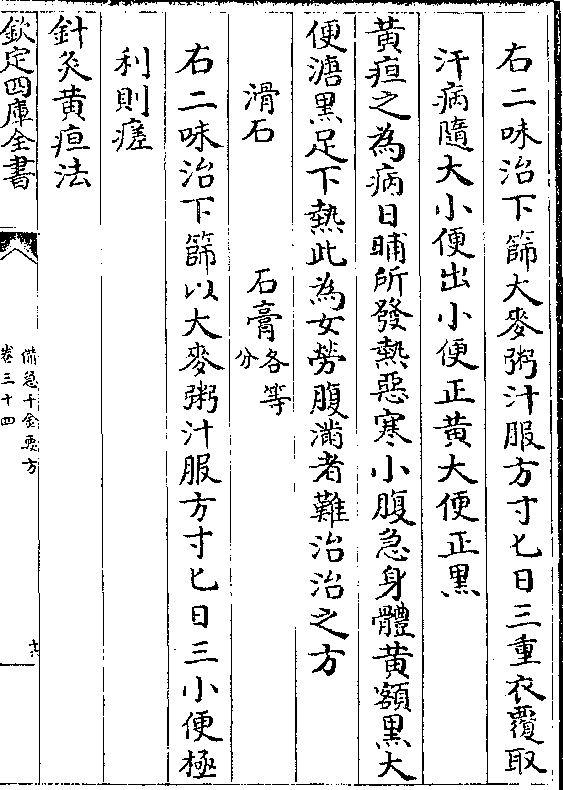 右二味治下篩大麥粥汁服方寸匕日三重衣覆取
汗病隨大小便出小便正黃大便正黑
黃疸之為病日晡所發熱惡寒小腹急身體黃額黑大
便溏黑足下熱此為女勞腹滿者難治治之方
滑石　石膏各等分
右二味治下篩以大麥粥汁服方寸匕日三小便極
利則瘥
針灸黃疸法
欽定四庫全書
備急千金要方
卷三十四